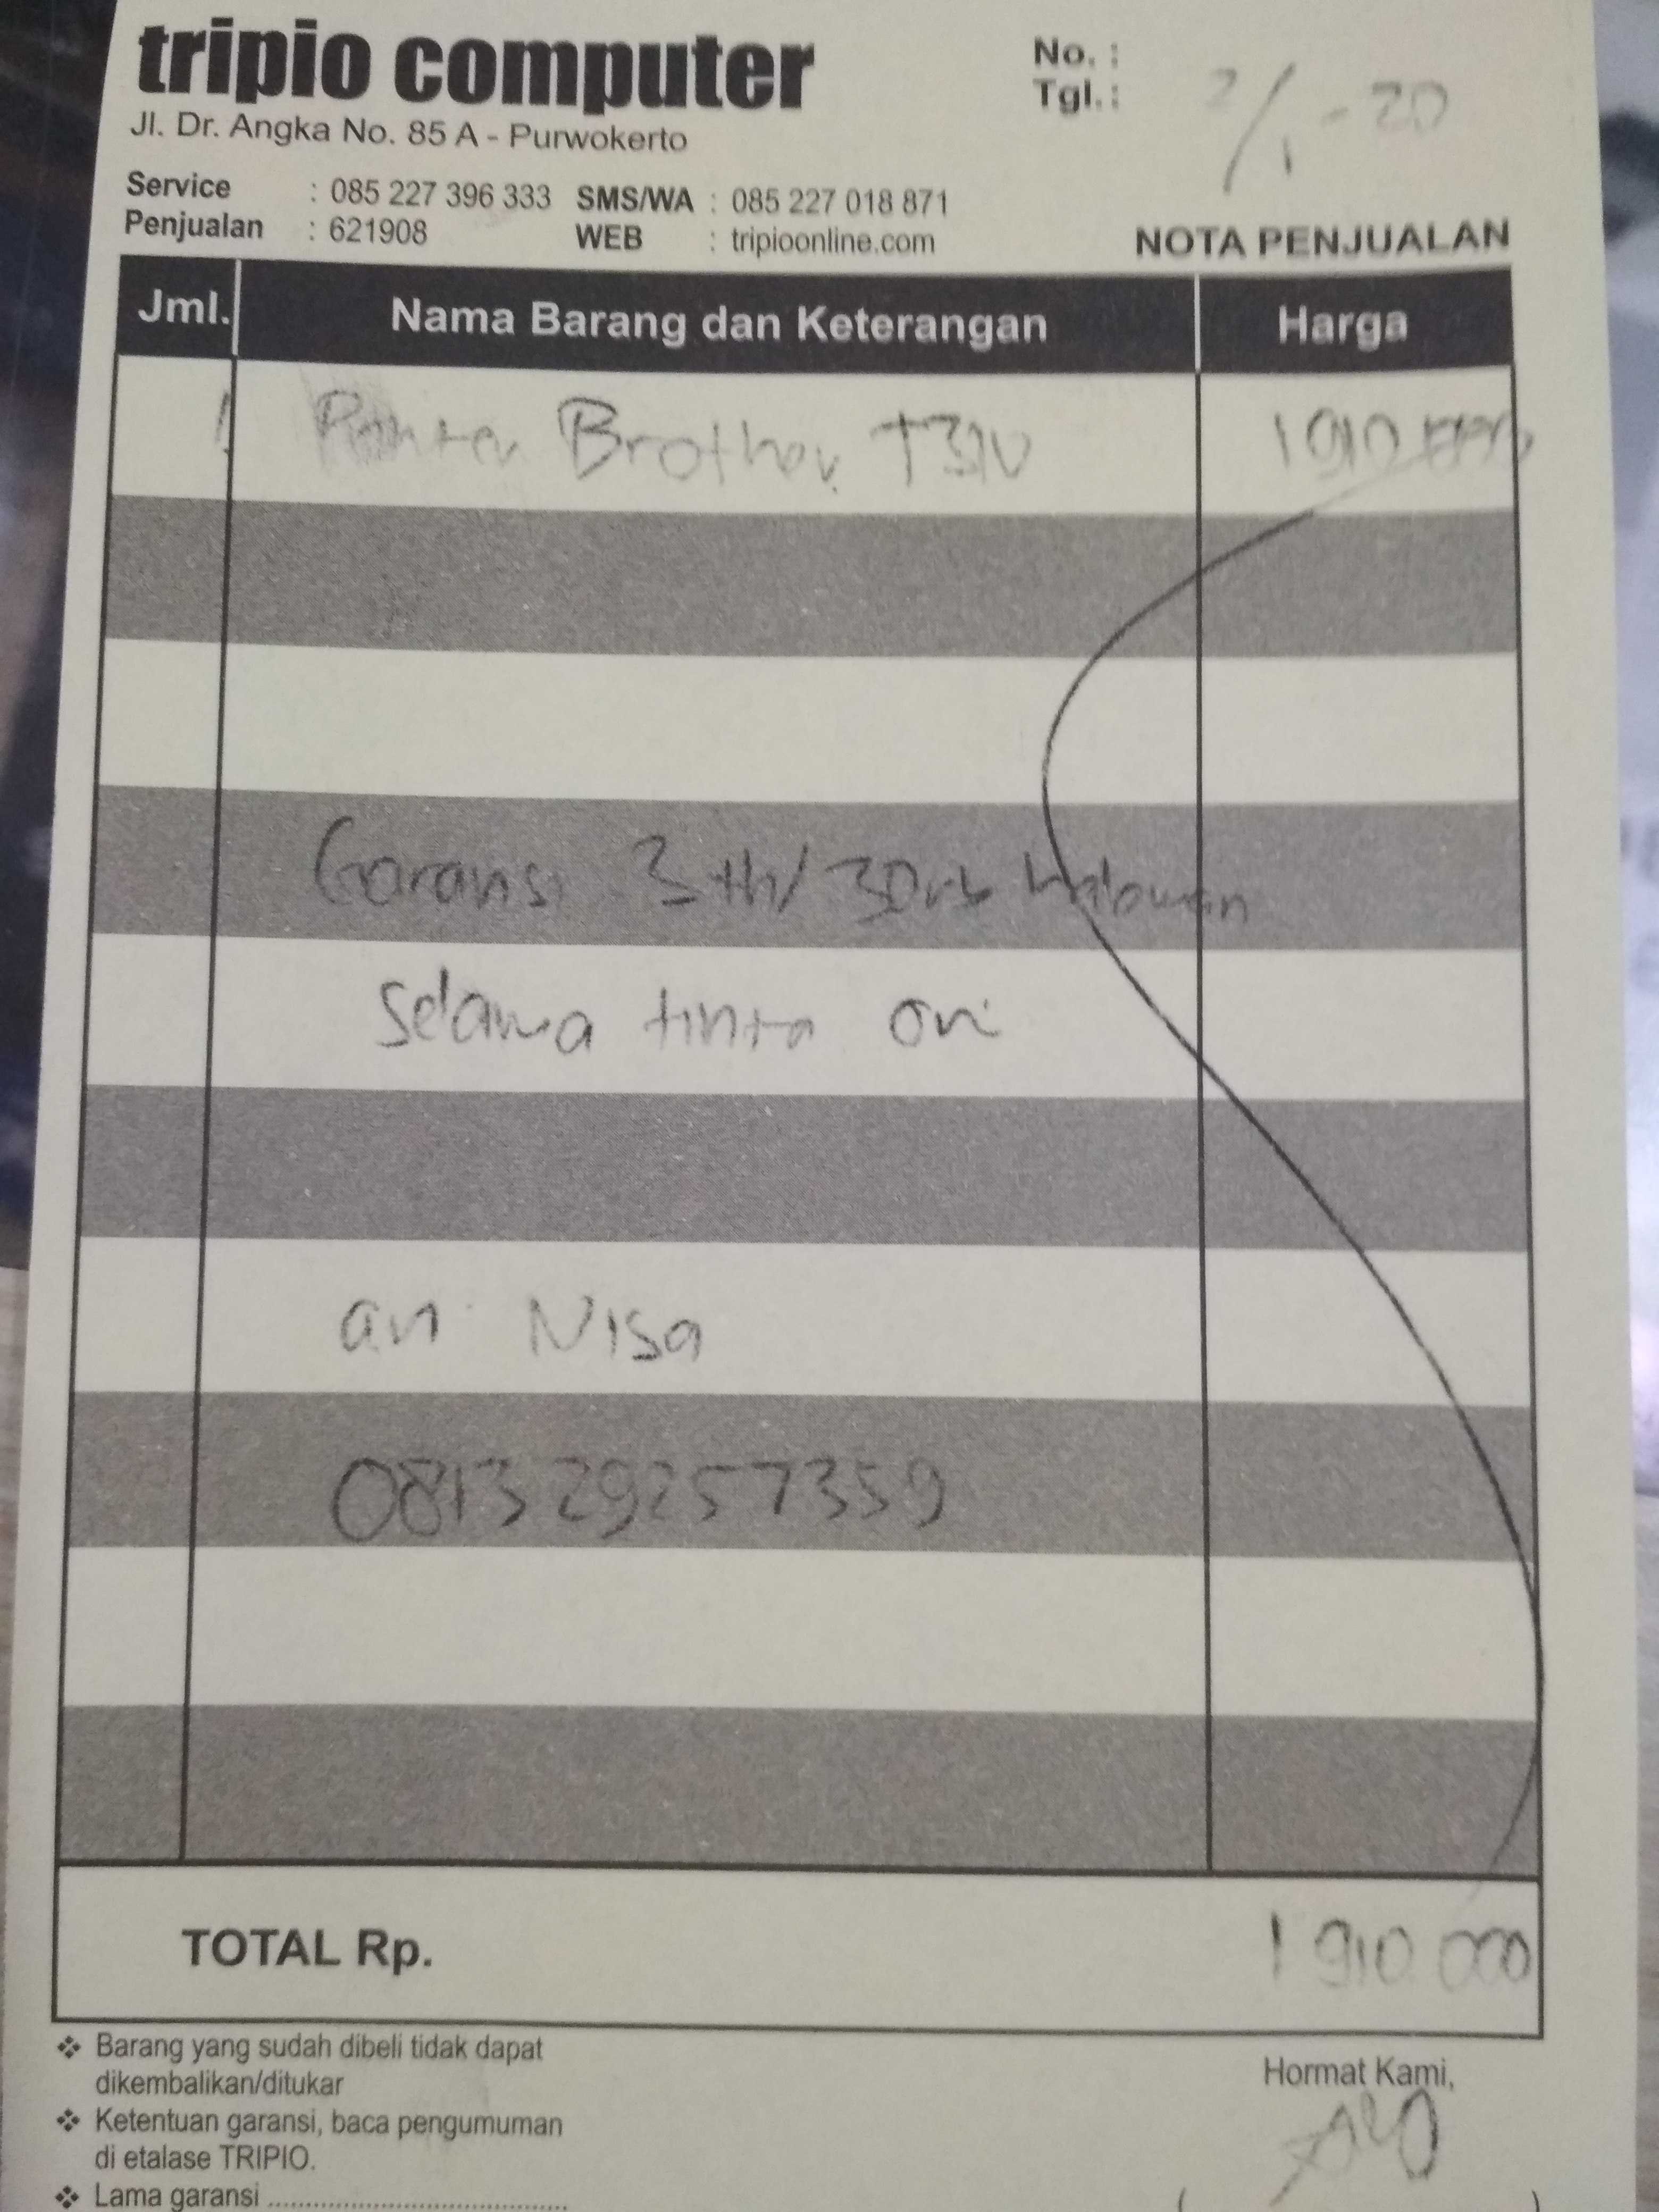 tripio computer
Jl. Dr. Angka No. 85 A - Purwokerto
No. :
Tgl. : 2/1-20
Service : 085 227 396 333 SMS/WA : 085 227 018 871
Penjualan : 621908 WEB : tripioonline.com
NOTA PENJUALAN
Jml. Nama Barang dan Keterangan Harga
1 Printer Brother T310 1910 000
Garansi 3 th/30rb halaman
selama tinta ori
an Nisa
081329257359
TOTAL Rp. 1 910 000
❖ Barang yang sudah dibeli tidak dapat
dikembalikan/ditukar
❖ Ketentuan garansi, baca pengumuman
di etalase TRIPIO.
❖ Lama garansi ........................................
Hormat Kami,
( )